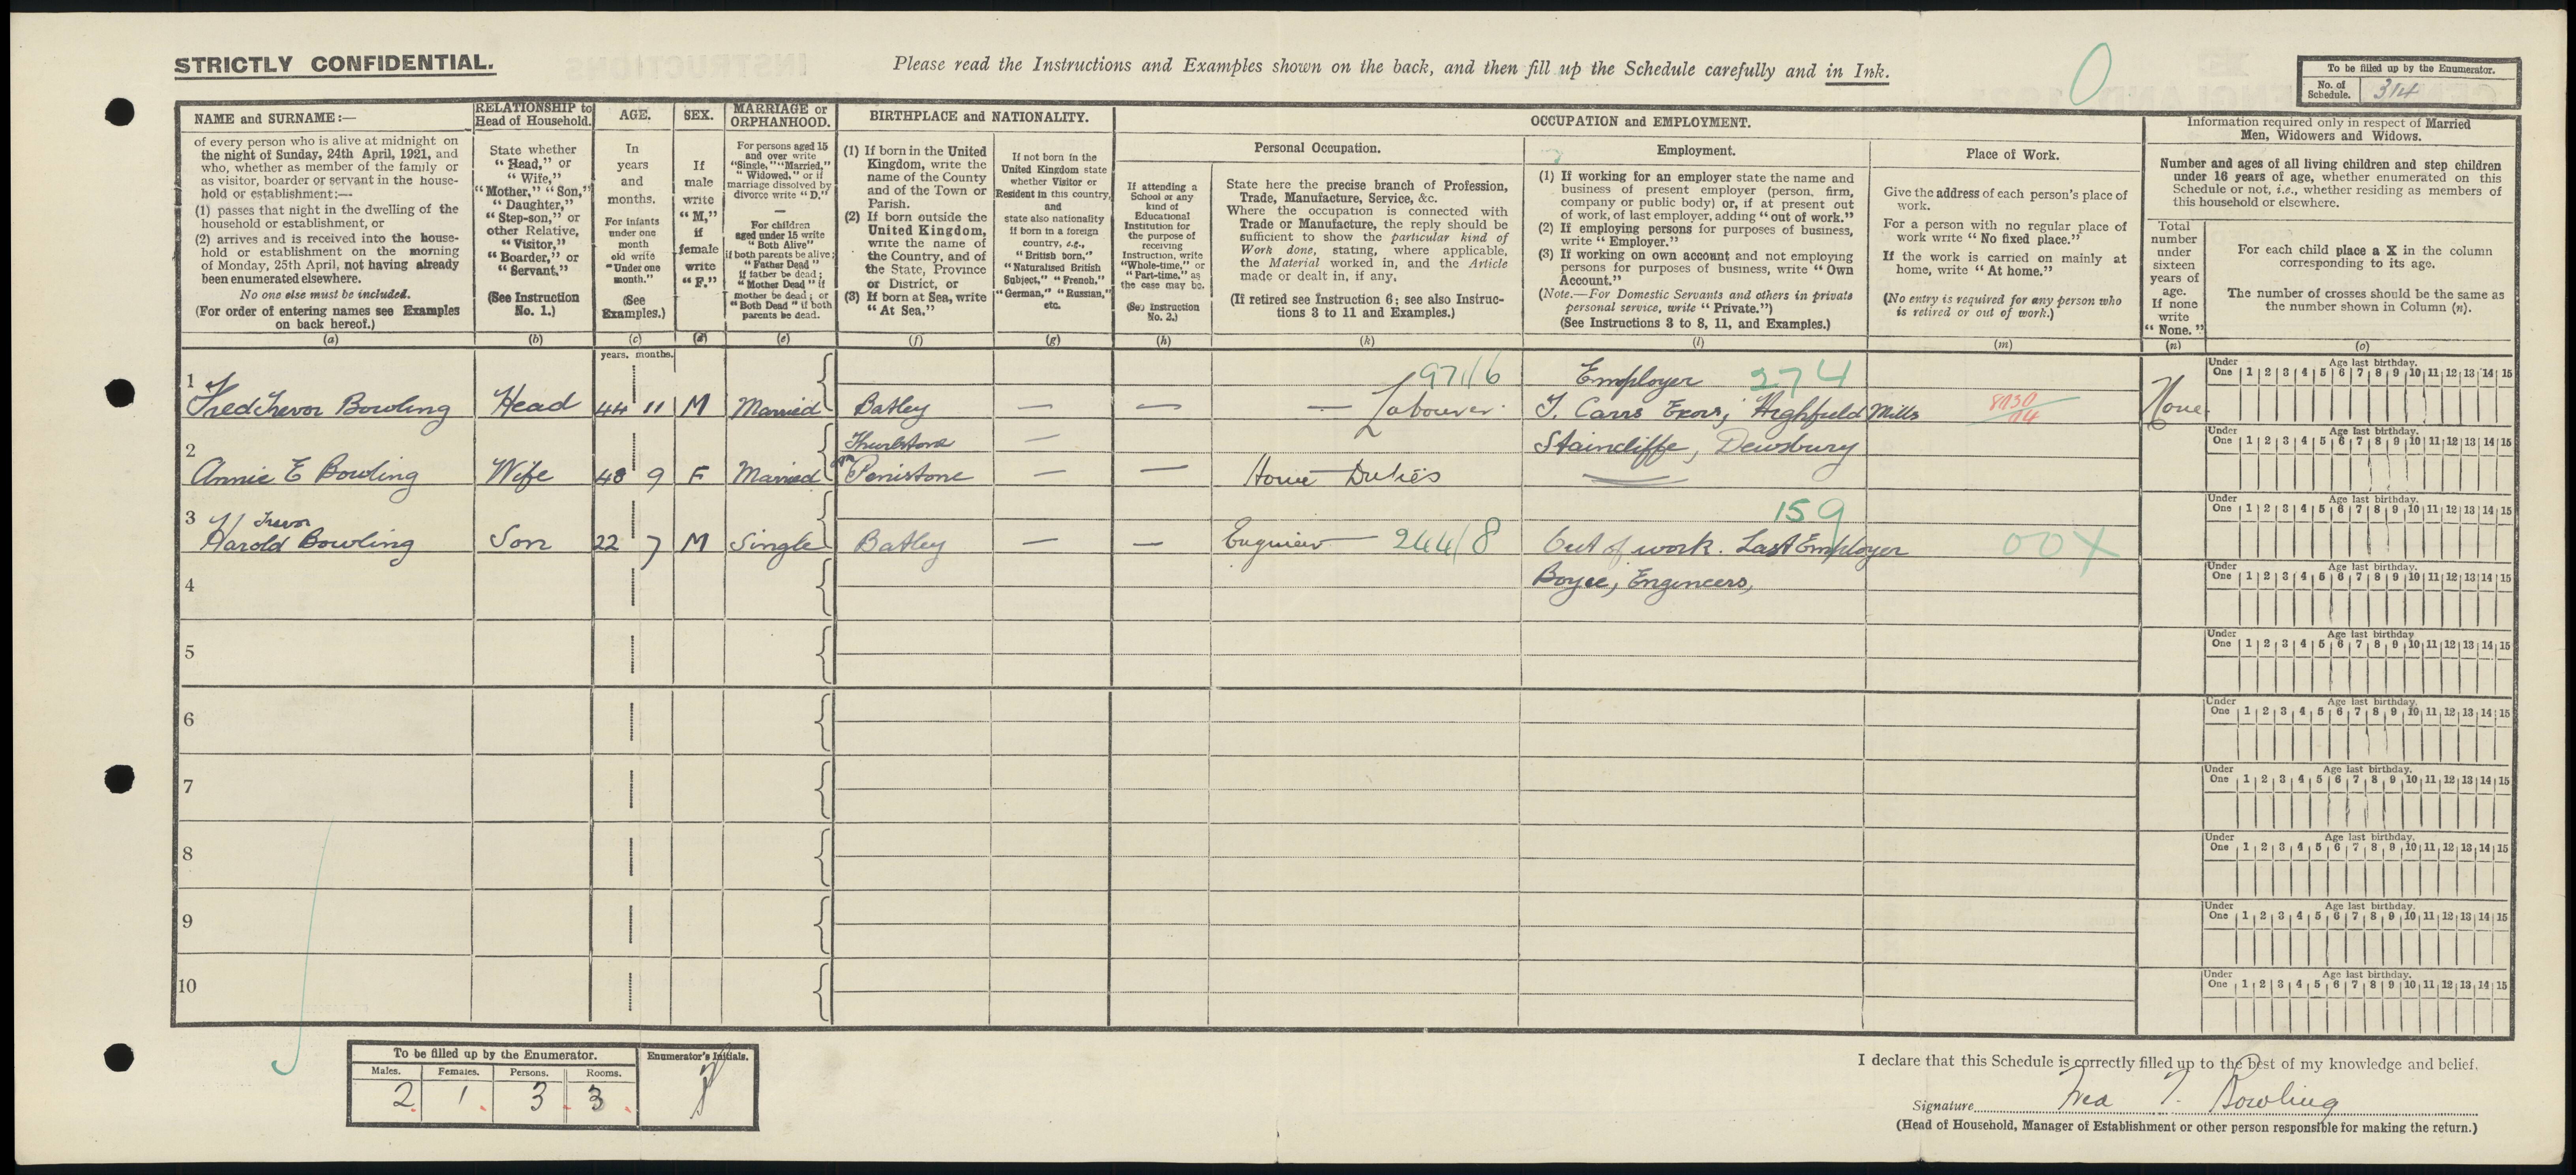 STRICTLY CONFIDENTIAL.
Please read the Instructions and Examples shown on the back, and then fill up the Schedule carefully and in Ink.
0
To be filled up by the Enumerator.
No. of Schedule. 314
NAME and SURNAME:—
of every person who is alive at midnight on
the night of Sunday, 24th April, 1921, and
who, whether as member of the family or
as visitor, boarder or servant in the house-
hold or establishment:—
(1) passes that night in the dwelling of the
household or establishment, or
(2) arrives and is received into the house-
hold or establishment on the morning
of Monday, 25th April, not having already
been enumerated elsewhere.
No one else must be included.
(For order of entering names see Examples
on back hereof.)
(a)
RELATIONSHIP to
Head of Household.
State whether
"Head," or
"Wife,"
"Mother," "Son,"
"Daughter,"
"Step-son," or
other Relative,
"Visitor,"
"Boarder," or
"Servant."
(See Instruction
No. 1.)
(b)
AGE.
In
years
and
months.
For infants
under one
month
old write
"Under one
month."
(See
Examples.)
(c)
SEX.
If
male
write
"M,"
if
female
write
"F."
(d)
MARRIAGE or
ORPHANHOOD.
For persons aged 15
and over write
"Single," "Married,"
"Widowed," or if
marriage dissolved by
divorce write "D."
—
For children
aged under 15 write
"Both Alive"
if both parents be alive;
"Father Dead"
if father be dead;
"Mother Dead" if
mother be dead; or
"Both Dead" if both
parents be dead.
(e)
BIRTHPLACE and NATIONALITY.
(1) If born in the United
Kingdom, write the
name of the County
and of the Town or
Parish.
(2) If born outside the
United Kingdom,
write the name of
the Country, and of
the State, Province
or District, or
(3) If born at Sea, write
"At Sea."
(f)
If not born in the
United Kingdom state
whether Visitor or
Resident in this country,
and
state also nationality
if born in a foreign
country, e.g.,
"British born,"
"Naturalised British
Subject," "French,"
"German," "Russian,"
etc.
(g)
OCCUPATION and EMPLOYMENT.
Personal Occupation.
If attending a
School or any
kind of
Educational
Institution for
the purpose of
receiving
Instruction, write
"Whole-time," or
"Part-time," as
the case may be.
(See Instruction
No. 2.)
(h)
State here the precise branch of Profession,
Trade, Manufacture, Service, &c.
Where the occupation is connected with
Trade or Manufacture, the reply should be
sufficient to show the particular kind of
Work done, stating, where applicable,
the Material worked in, and the Article
made or dealt in, if any.
(If retired see Instruction 6; see also Instruc-
tions 3 to 11 and Examples.)
(k)
Employment.
(1) If working for an employer state the name and
business of present employer (person, firm,
company or public body) or, if at present out
of work, of last employer, adding "out of work."
(2) If employing persons for purposes of business,
write "Employer."
(3) If working on own account and not employing
persons for purposes of business, write "Own
Account."
(Note.—For Domestic Servants and others in private
personal service, write "Private.")
(See Instructions 3 to 8, 11, and Examples.)
(l)
Place of Work.
Give the address of each person's place of
work.
For a person with no regular place of
work write "No fixed place."
If the work is carried on mainly at
home, write "At home."
(No entry is required for any person who
is retired or out of work.)
(m)
Information required only in respect of Married
Men, Widowers and Widows.
Number and ages of all living children and step children
under 16 years of age, whether enumerated on this
Schedule or not, i.e., whether residing as members of
this household or elsewhere.
Total
number
under
sixteen
years of
age.
If none
write
"None."
(n)
For each child place a X in the column
corresponding to its age.
The number of crosses should be the same as
the number shown in Column (n).
(o)
years. months.
1 Fred Trevor Bowling Head 44 11 M Married Batley — — — Labourer. 971/6 Employer 274
T. Carrs Exors, Highfield Mills 8130/04 None
Staincliffe, Dewsbury
2 Annie E Bowling Wife 48 9 F Married Thurlstone
Penistone — — Home Duties
3 Harold Trevor Bowling Son 22 7 M Single Batley — — Engineer 244/8 159
Out of work. Last Employer 00X
Boyce, Engineers,
4
5
6
7
8
9
10
Under One Age last birthday. 1 2 3 4 5 6 7 8 9 10 11 12 13 14 15
Under One Age last birthday. 1 2 3 4 5 6 7 8 9 10 11 12 13 14 15
Under One Age last birthday. 1 2 3 4 5 6 7 8 9 10 11 12 13 14 15
Under One Age last birthday. 1 2 3 4 5 6 7 8 9 10 11 12 13 14 15
Under One Age last birthday 1 2 3 4 5 6 7 8 9 10 11 12 13 14 15
Under One Age last birthday. 1 2 3 4 5 6 7 8 9 10 11 12 13 14 15
Under One Age last birthday. 1 2 3 4 5 6 7 8 9 10 11 12 13 14 15
Under One Age last birthday. 1 2 3 4 5 6 7 8 9 10 11 12 13 14 15
Under One Age last birthday. 1 2 3 4 5 6 7 8 9 10 11 12 13 14 15
Under One Age last birthday. 1 2 3 4 5 6 7 8 9 10 11 12 13 14 15
To be filled up by the Enumerator.
Males. Females. Persons. Rooms.
2 1 3 3
Enumerator's Initials.
I declare that this Schedule is correctly filled up to the best of my knowledge and belief.
Signature Fred T. Bowling
(Head of Household, Manager of Establishment or other person responsible for making the return.)